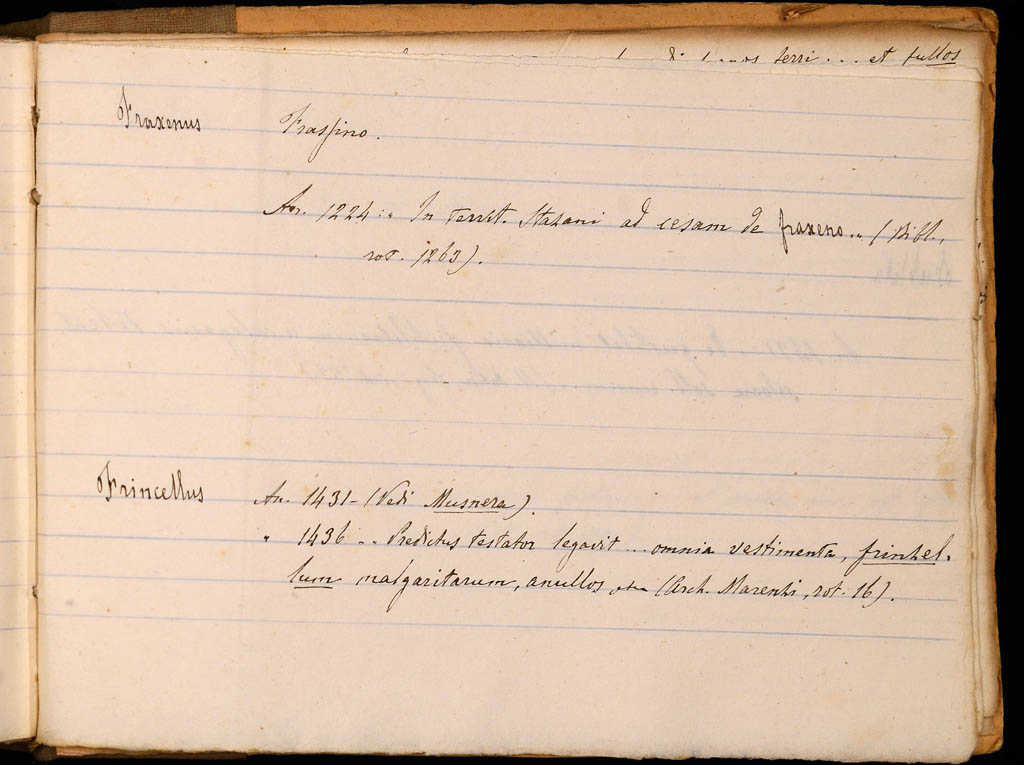 terri ... et fullos
Fraxenus Frassino.
An. 1224 :" In territ. Stazani ad cesam de fraxeno " (Bibl.,
rot. 1263).
Frincellus An. 1431 - (Vedi Musnera).
" 1436 " Predictus testator legavit ... omnia vestimenta, frinzel-
lum malgaritarum, anullos (Arch. Marenzi, rot. 16).